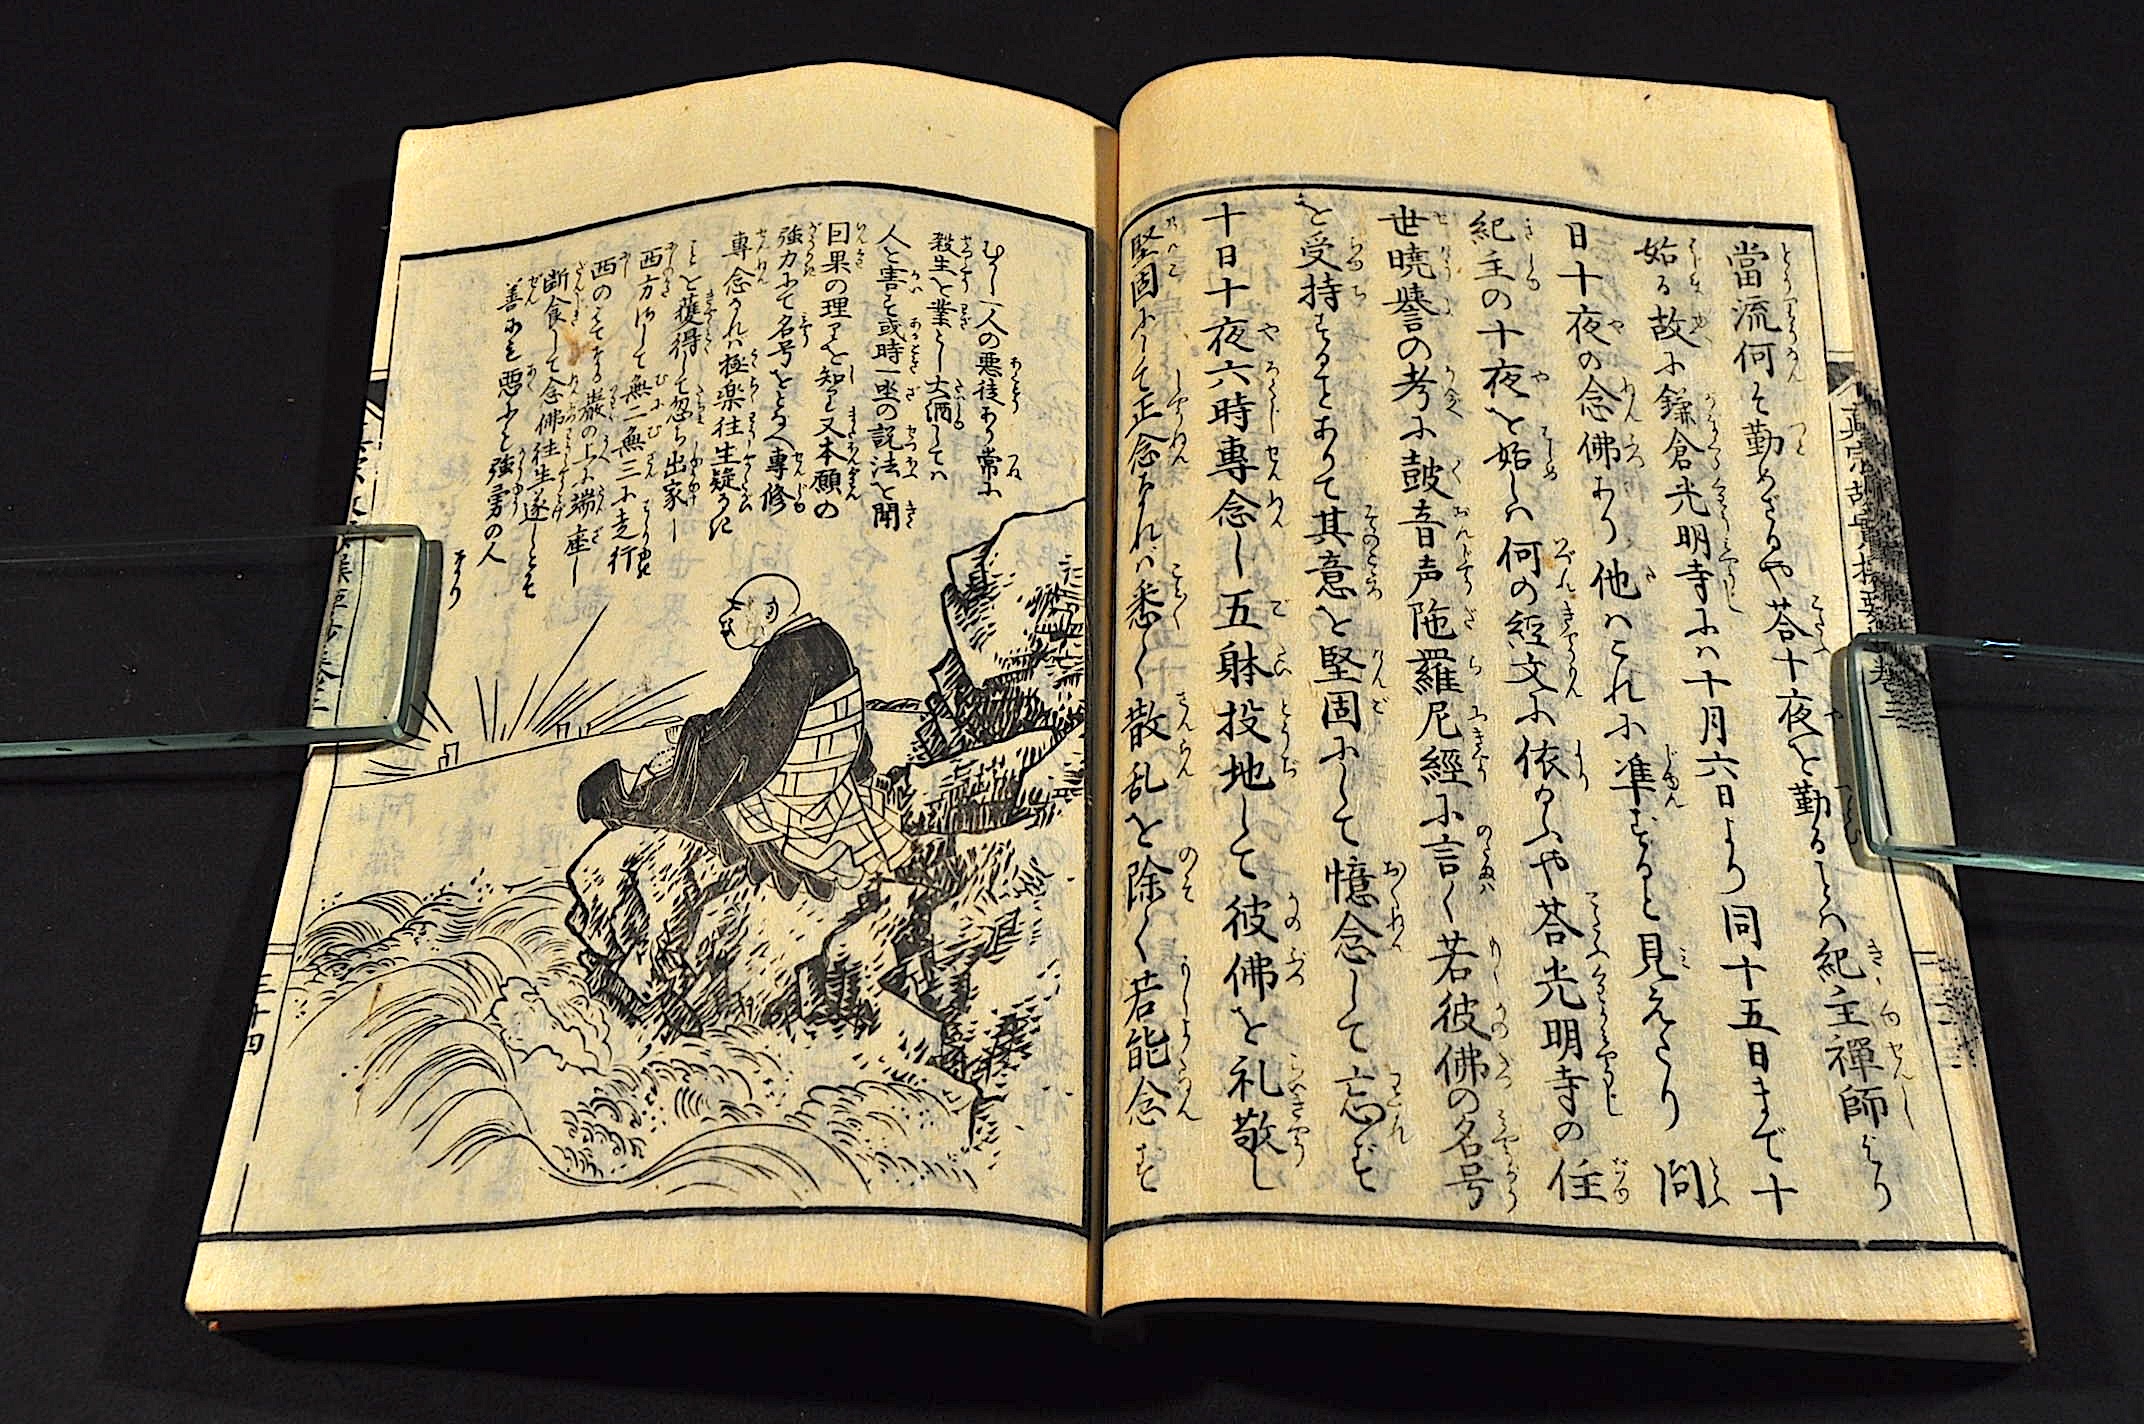 當流何そ勤めざるや荅十夜を勤ることハ紀主禪師より
始る故に鎌倉光明寺にハ十月六日より同十五日まで十
日十夜の念佛あり他ハこれに準ずると見えたり 問
紀主の十夜を始しハ何の經文に依るや荅光明寺の住
世曉譽の考に鼓音声陁羅尼經に言く若彼佛の名号
を受持するとありて其意を堅固にして憶念して忘ず
十日十夜六時專念し五躰投地して彼佛を礼敬し
堅固にして正念なれバ悉く散乱を除く若能念ず
むかし一人の悪徒あり常に
殺生を業とし大酒してハ
人を害す或時一坐の説法を聞
因果の理を知し又本願の
強力にて名号をとなへ專修
專念なれバ極樂往生疑なき
ことを獲得して忽ち出家し
西方にして無二無三に走行
西のはてなる巌の上に端座し
断食して念佛往生遂しとぞ
善にも悪にも強勇の人
なり
三十四